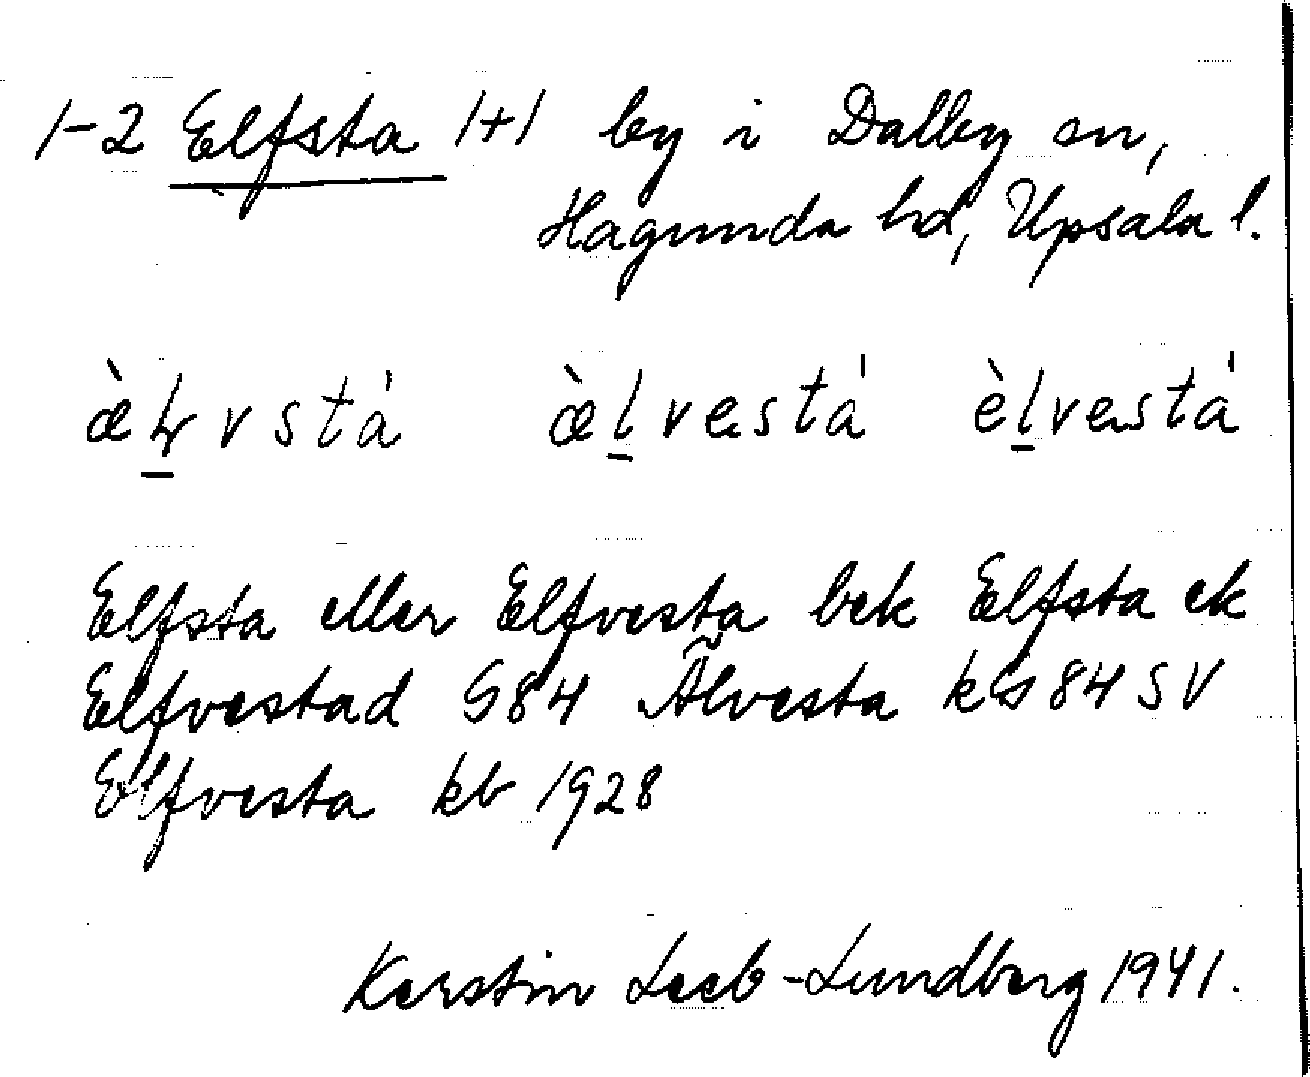 1-2 Elfsta 1+1 by i Dalby sn,
Hagunda hd, Upsala l.
æ̀l̠vstá æ̀l̠vestá èl̠vestá
Elfsta eller Elfvesta bek Elfsta ek
Elfvestad G84 Älvesta ks 84 SV
Elfvesta kb 1928
Kerstin Leeb-Lundberg 1941.